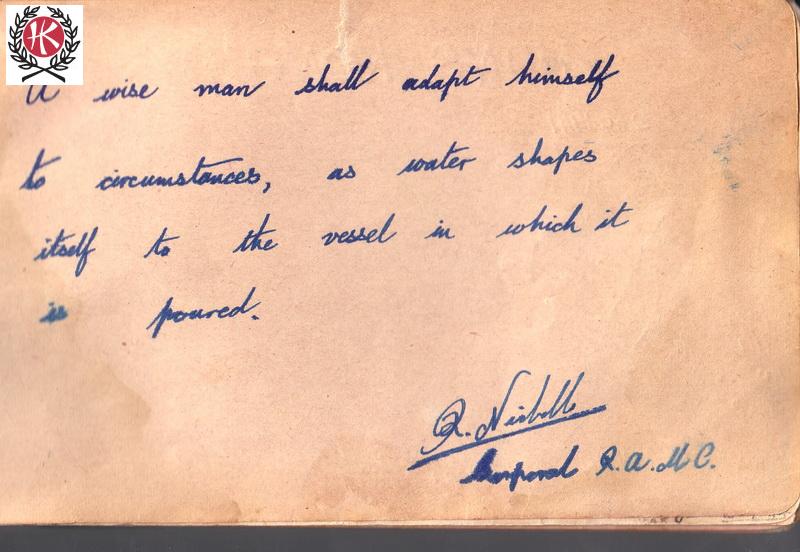 HK
A wise man shall adapt himself
to circumstances, as water shapes
itself to the vessel in which it
is poured.
R. Nisbett
Corporal R.A.M.C.